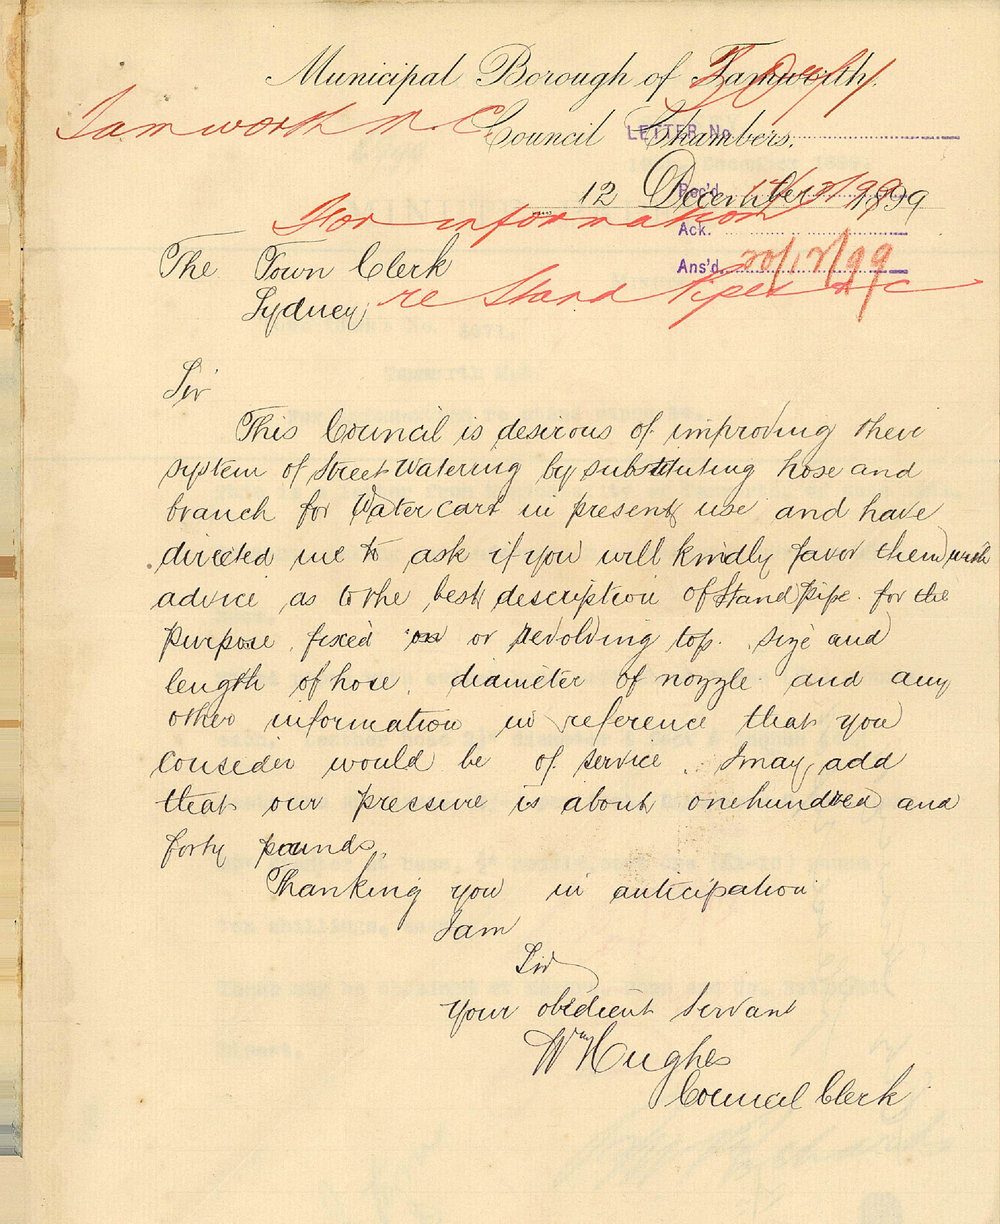 Municipal Borough of Tamworth.
Tamworth M. C.
Council Chambers.
LETTER No
12 December 1899
Rec'd 14/12/99
For information
Ack.
The Town Clerk
Ans'd. 20/12/99
Sydney
re Stand Pipes &c
Sir
This Council is desirous of improving their
system of Street Watering by substituting hose and
branch for Water Cart in present use and have
directed me to ask if you will kindly favor them with
advice as to the best description of Stand Pipe for the
purpose, fixed or revolving top. Size and
length of hose, diameter of nozzle and any
other information in reference that you
consider would be of service. I may add
that our pressure is about onehundred and
forty pounds.
Thanking you in anticipation
I am
Sir
Your obedient Servant
Wm Hughes
Council Clerk